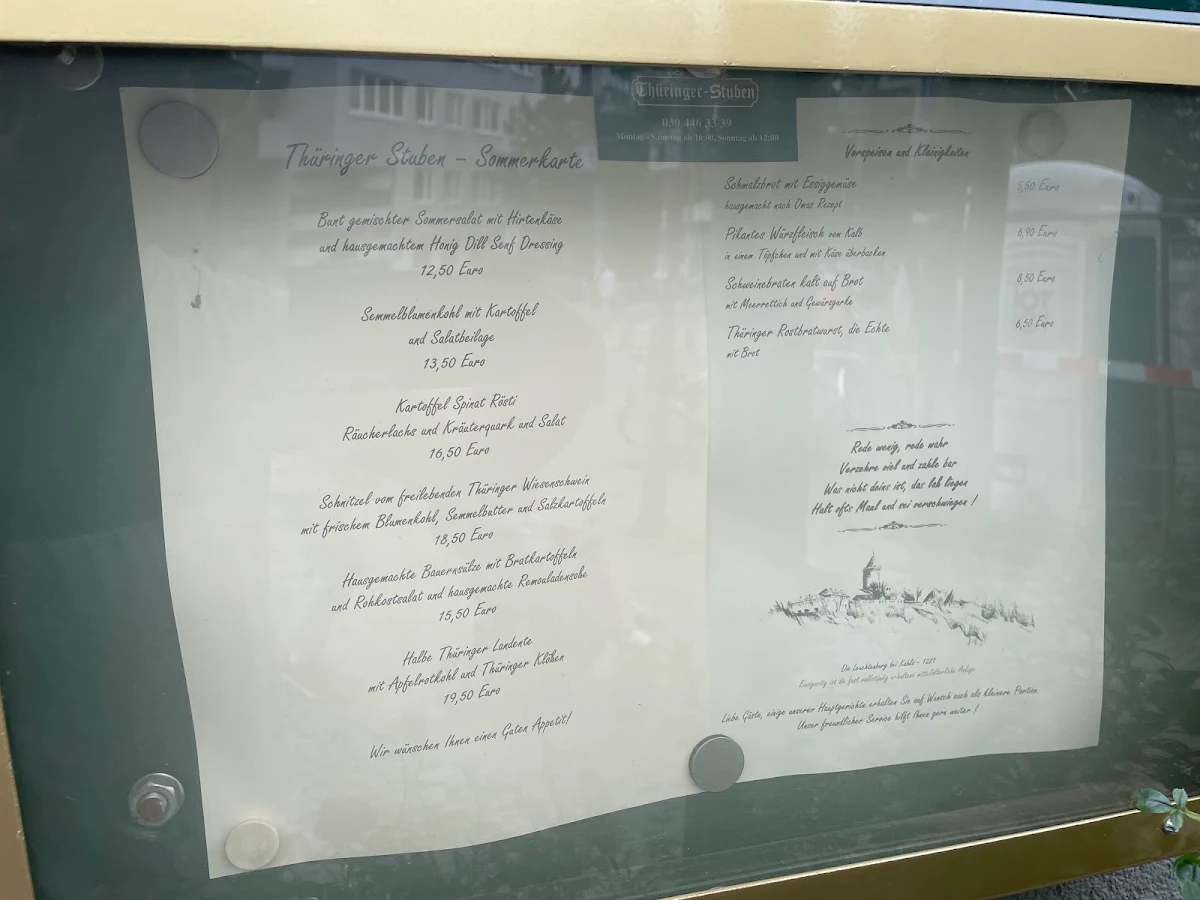 Thüringer-Stuben
030 446 33 39
Montag - Samstag ab 16:00, Sonntag ab 12:00
Thüringer Stuben – Sommerkarte
Bunt gemischter Sommersalat mit Hirtenkäse
und hausgemachtem Honig Dill Senf Dressing
12,50 Euro
Semmelblumenkohl mit Kartoffel
und Salatbeilage
13,50 Euro
Kartoffel Spinat Rösti
Räucherlachs und Kräuterquark und Salat
16,50 Euro
Schnitzel vom freilebenden Thüringer Wiesenschwein
mit frischem Blumenkohl, Semmelbutter und Salzkartoffeln
18,50 Euro
Hausgemachte Bauernsülze mit Bratkartoffeln
und Rohkostsalat und hausgemachte Remouladensoße
15,50 Euro
Halbe Thüringer Landente
mit Apfelrotkohl und Thüringer Klößen
19,50 Euro
Wir wünschen Ihnen einen Guten Appetit!
Vorspeisen und Kleinigkeiten
Schmalzbrot mit Essiggemüse 5,50 Euro
hausgemacht nach Omas Rezept
Pikantes Würzfleisch vom Kalb 6,90 Euro
in einem Töpfchen und mit Käse überbacken
Schweinebraten kalt auf Brot 8,50 Euro
mit Meerrettich und Gewürzgurke
Thüringer Rostbratwurst, die Echte 6,50 Euro
mit Brot
Rede wenig, rede wahr
Verzehre viel und zahle bar
Was nicht deins ist, das laß liegen
Halt ofts Maul und sei verschwiegen !
Die Leuchtenburg bei Kahla – 1221
Einzigartig ist die fast vollständig erhaltene mittelalterliche Anlage
Liebe Gäste, einige unserer Hauptgerichte erhalten Sie auf Wunsch auch als kleinere Portion.
Unser freundlicher Service hilft Ihnen gern weiter !